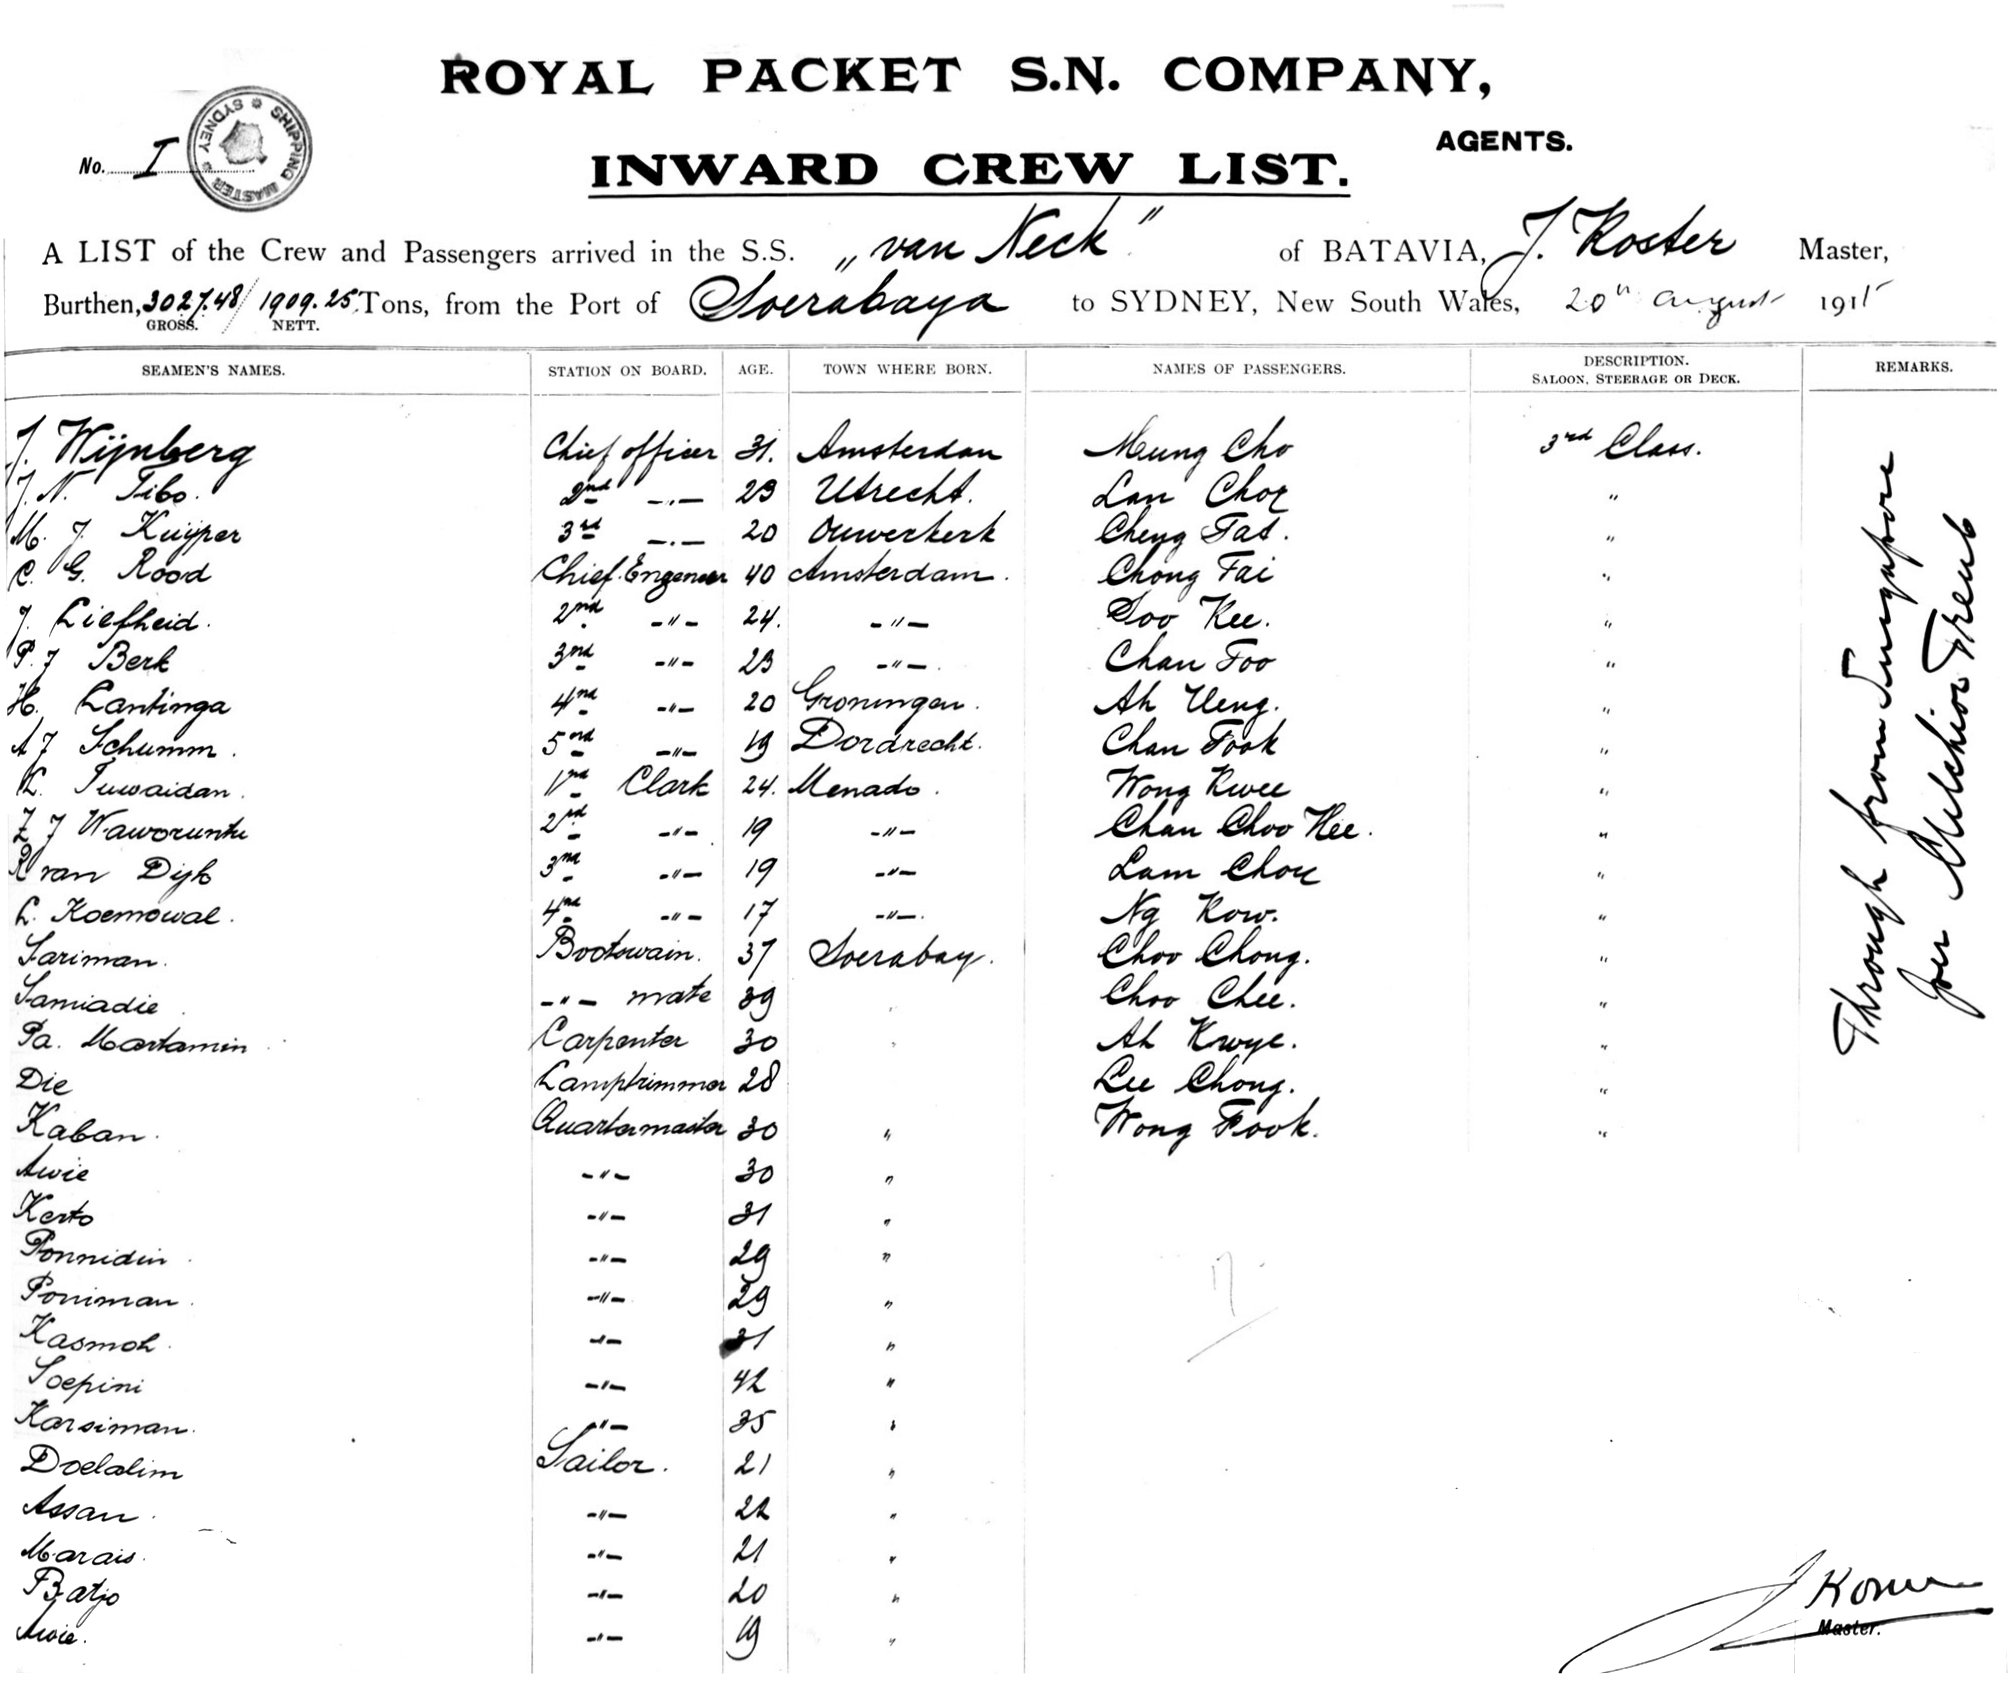 ROYAL PACKET S.N. COMPANY,
AGENTS.
No. I
SHIPPING MASTER SYDNEY
INWARD CREW LIST.
A LIST of the Crew and Passengers arrived in the S.S. „van Neck" of BATAVIA, J. Koster Master,
Burthen, 3027.48/1909.25 Tons, from the Port of Soerabaya to SYDNEY, New South Wales, 20th august 1915
GROSS. NETT.
SEAMEN'S NAMES. STATION ON BOARD. AGE. TOWN WHERE BORN. NAMES OF PASSENGERS. DESCRIPTION. SALOON, STEERAGE OR DECK. REMARKS.
J. Wijnberg Chief officer 31. Amsterdam Meung Cho 3rd Class.
J. N. Tibo. 2nd -.- 29 Utrecht. Lan Choy "
M. J Kuijper 3rd -.- 20 Ouwerkerk Cheng Fat. "
C. G. Rood Chief Engeneer 40 Amsterdam. Chong Fai "
J. Liefheid. 2nd -"- 24. -"- Soo Kee. "
P. J Berk 3nd -"- 23 -"-. Chan Foo "
H. Lantinga 4nd -"- 20 Groningen. Ah Ueng. "
A J Schumm. 5nd -"- 19 Dordrecht. Chan Fook "
L. Tuwaidan. 1nd Clark 24. Menado. Wong Kwee "
Z J Waworuntu 2nd -"- 19 -"- Chan Choo Hee. "
R van Dijk 3nd -"- 19 -"- Lam Chou "
L. Koemowal. 4nd -"- 17 -"-. Ng Kow. "
Sariman. Bootswain. 37 Soerabay. Choo Chong. "
Samiadie -"- mate 39 Choo Chee. "
Pa. Martamin Carpenter 30 Ah Kwye. "
Die Lamptrimmer 28 Lee Chong. "
Kaban. Quartermaster 30 " Wong Fook. "
Awie -"- 30 "
Kerto -"- 31 "
Ponnidin -"- 29 "
Poniman. -"- 29 "
Kasmoh. -"- 31 "
Soepini -"- 42 "
Karsiman. -"- 35 "
Doelalim Sailor. 21 "
Assan. -"- 22 "
Marais. -"- 21 "
Batjo -"- 20 "
Awie. -"- 19 "
Through from Singapore
per Melchior Treub
17
J Koster
Master.